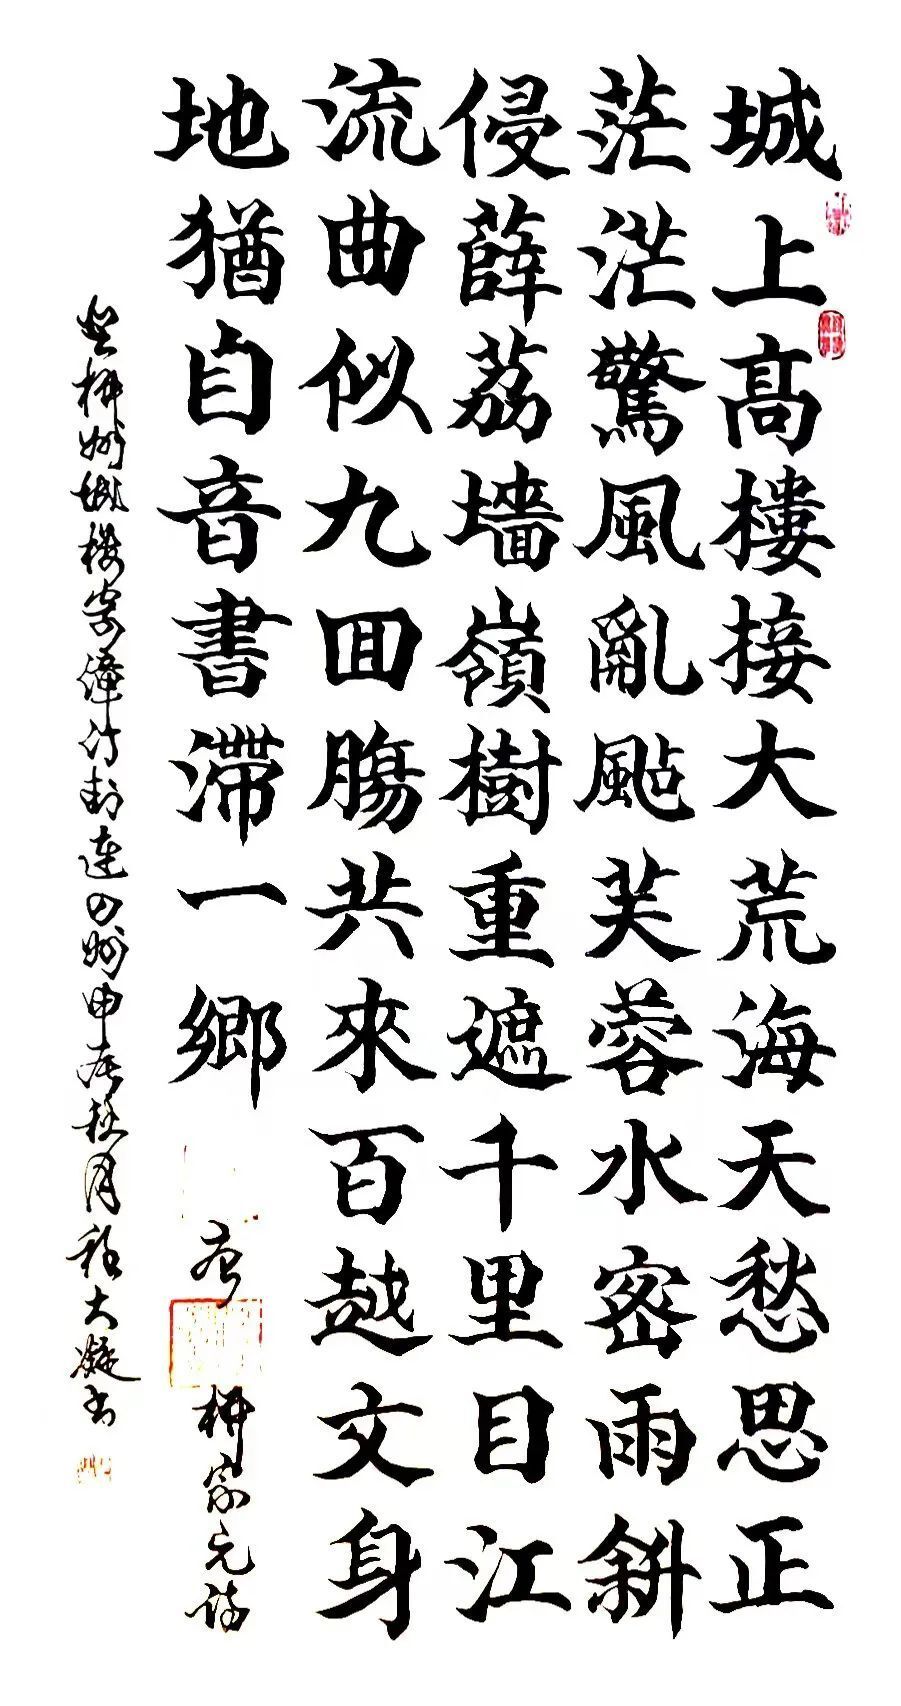 城上高樓接大荒海天愁思正
茫茫驚風亂颭芙蓉水密雨斜
侵薜荔墻嶺樹重遮千里目江
流曲似九囬腸共來百越文身
地猶自音書滯一鄉 唐 柳宗元詩
登柳州城樓寄漳汀封連四州甲辰秋月程大凝书